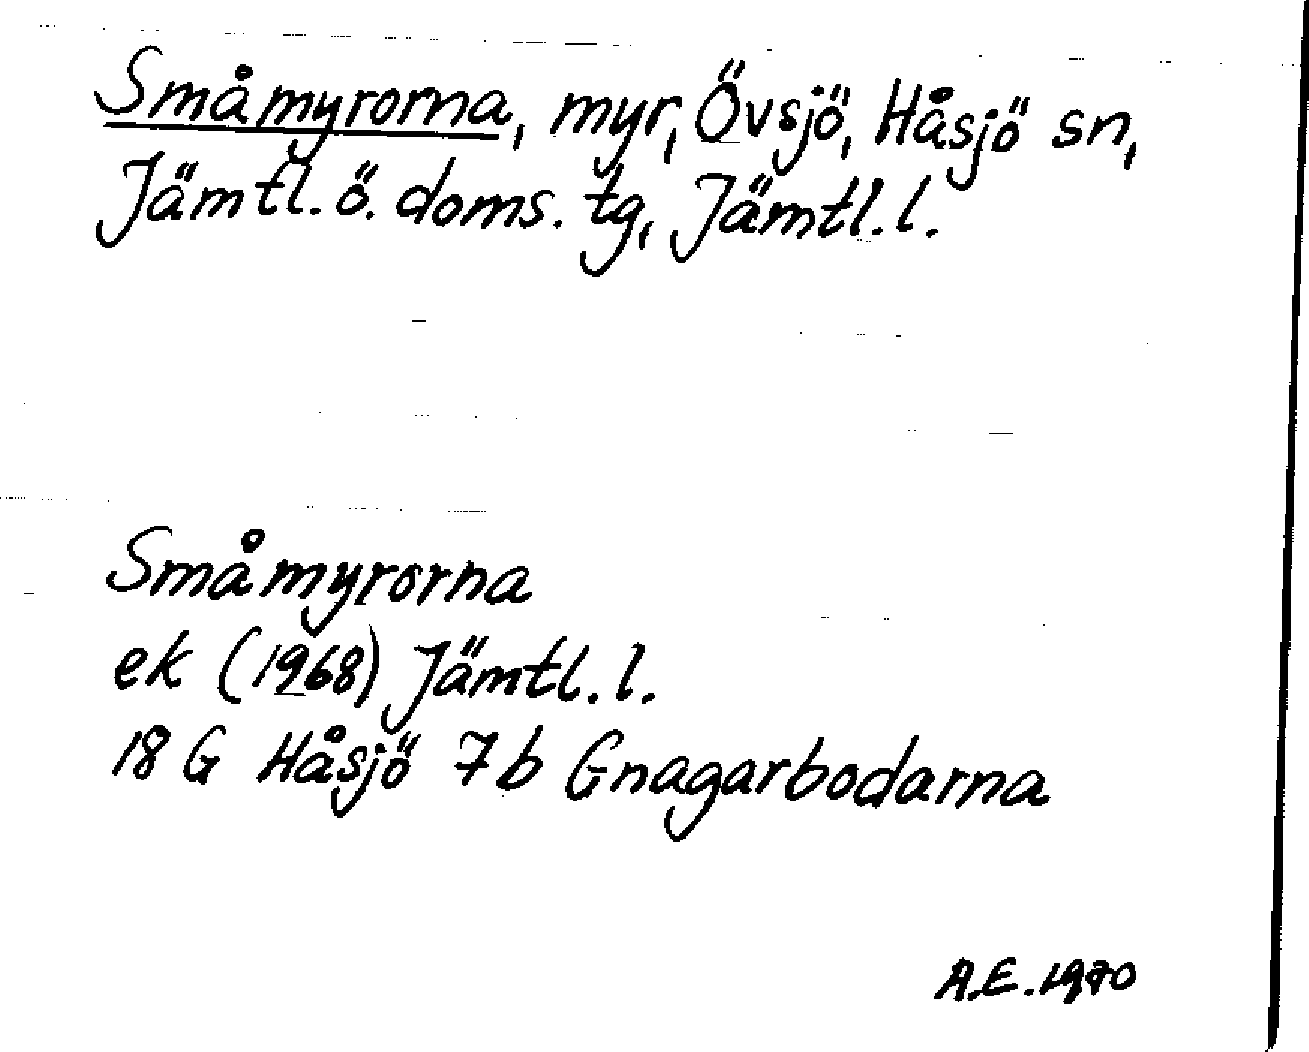 Småmyrorna, myr, Övsjö, Håsjö sn,
Jämtl. ö. doms. tg, Jämtl. l.
Småmyrorna
ek (1968) Jämtl. l.
18 G Håsjö 7 b Gnagarbodarna
A.E. 1970